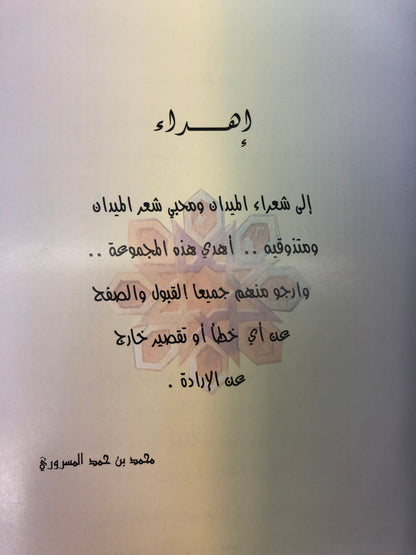 إهداء
إلى شعراء الميدان ومحبي شعر الميدان
ومتذوقيه .. أهدي هذه المجموعة ..
وارجو منهم جميعا القبول والصفح
عن أي خطأ أو تقصير خارج
عن الإرادة .
محمد بن حمد المسروري